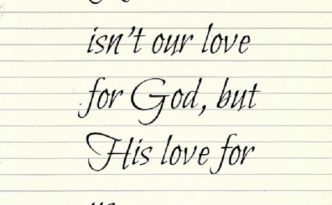 isn't our love
for God, but
His love for